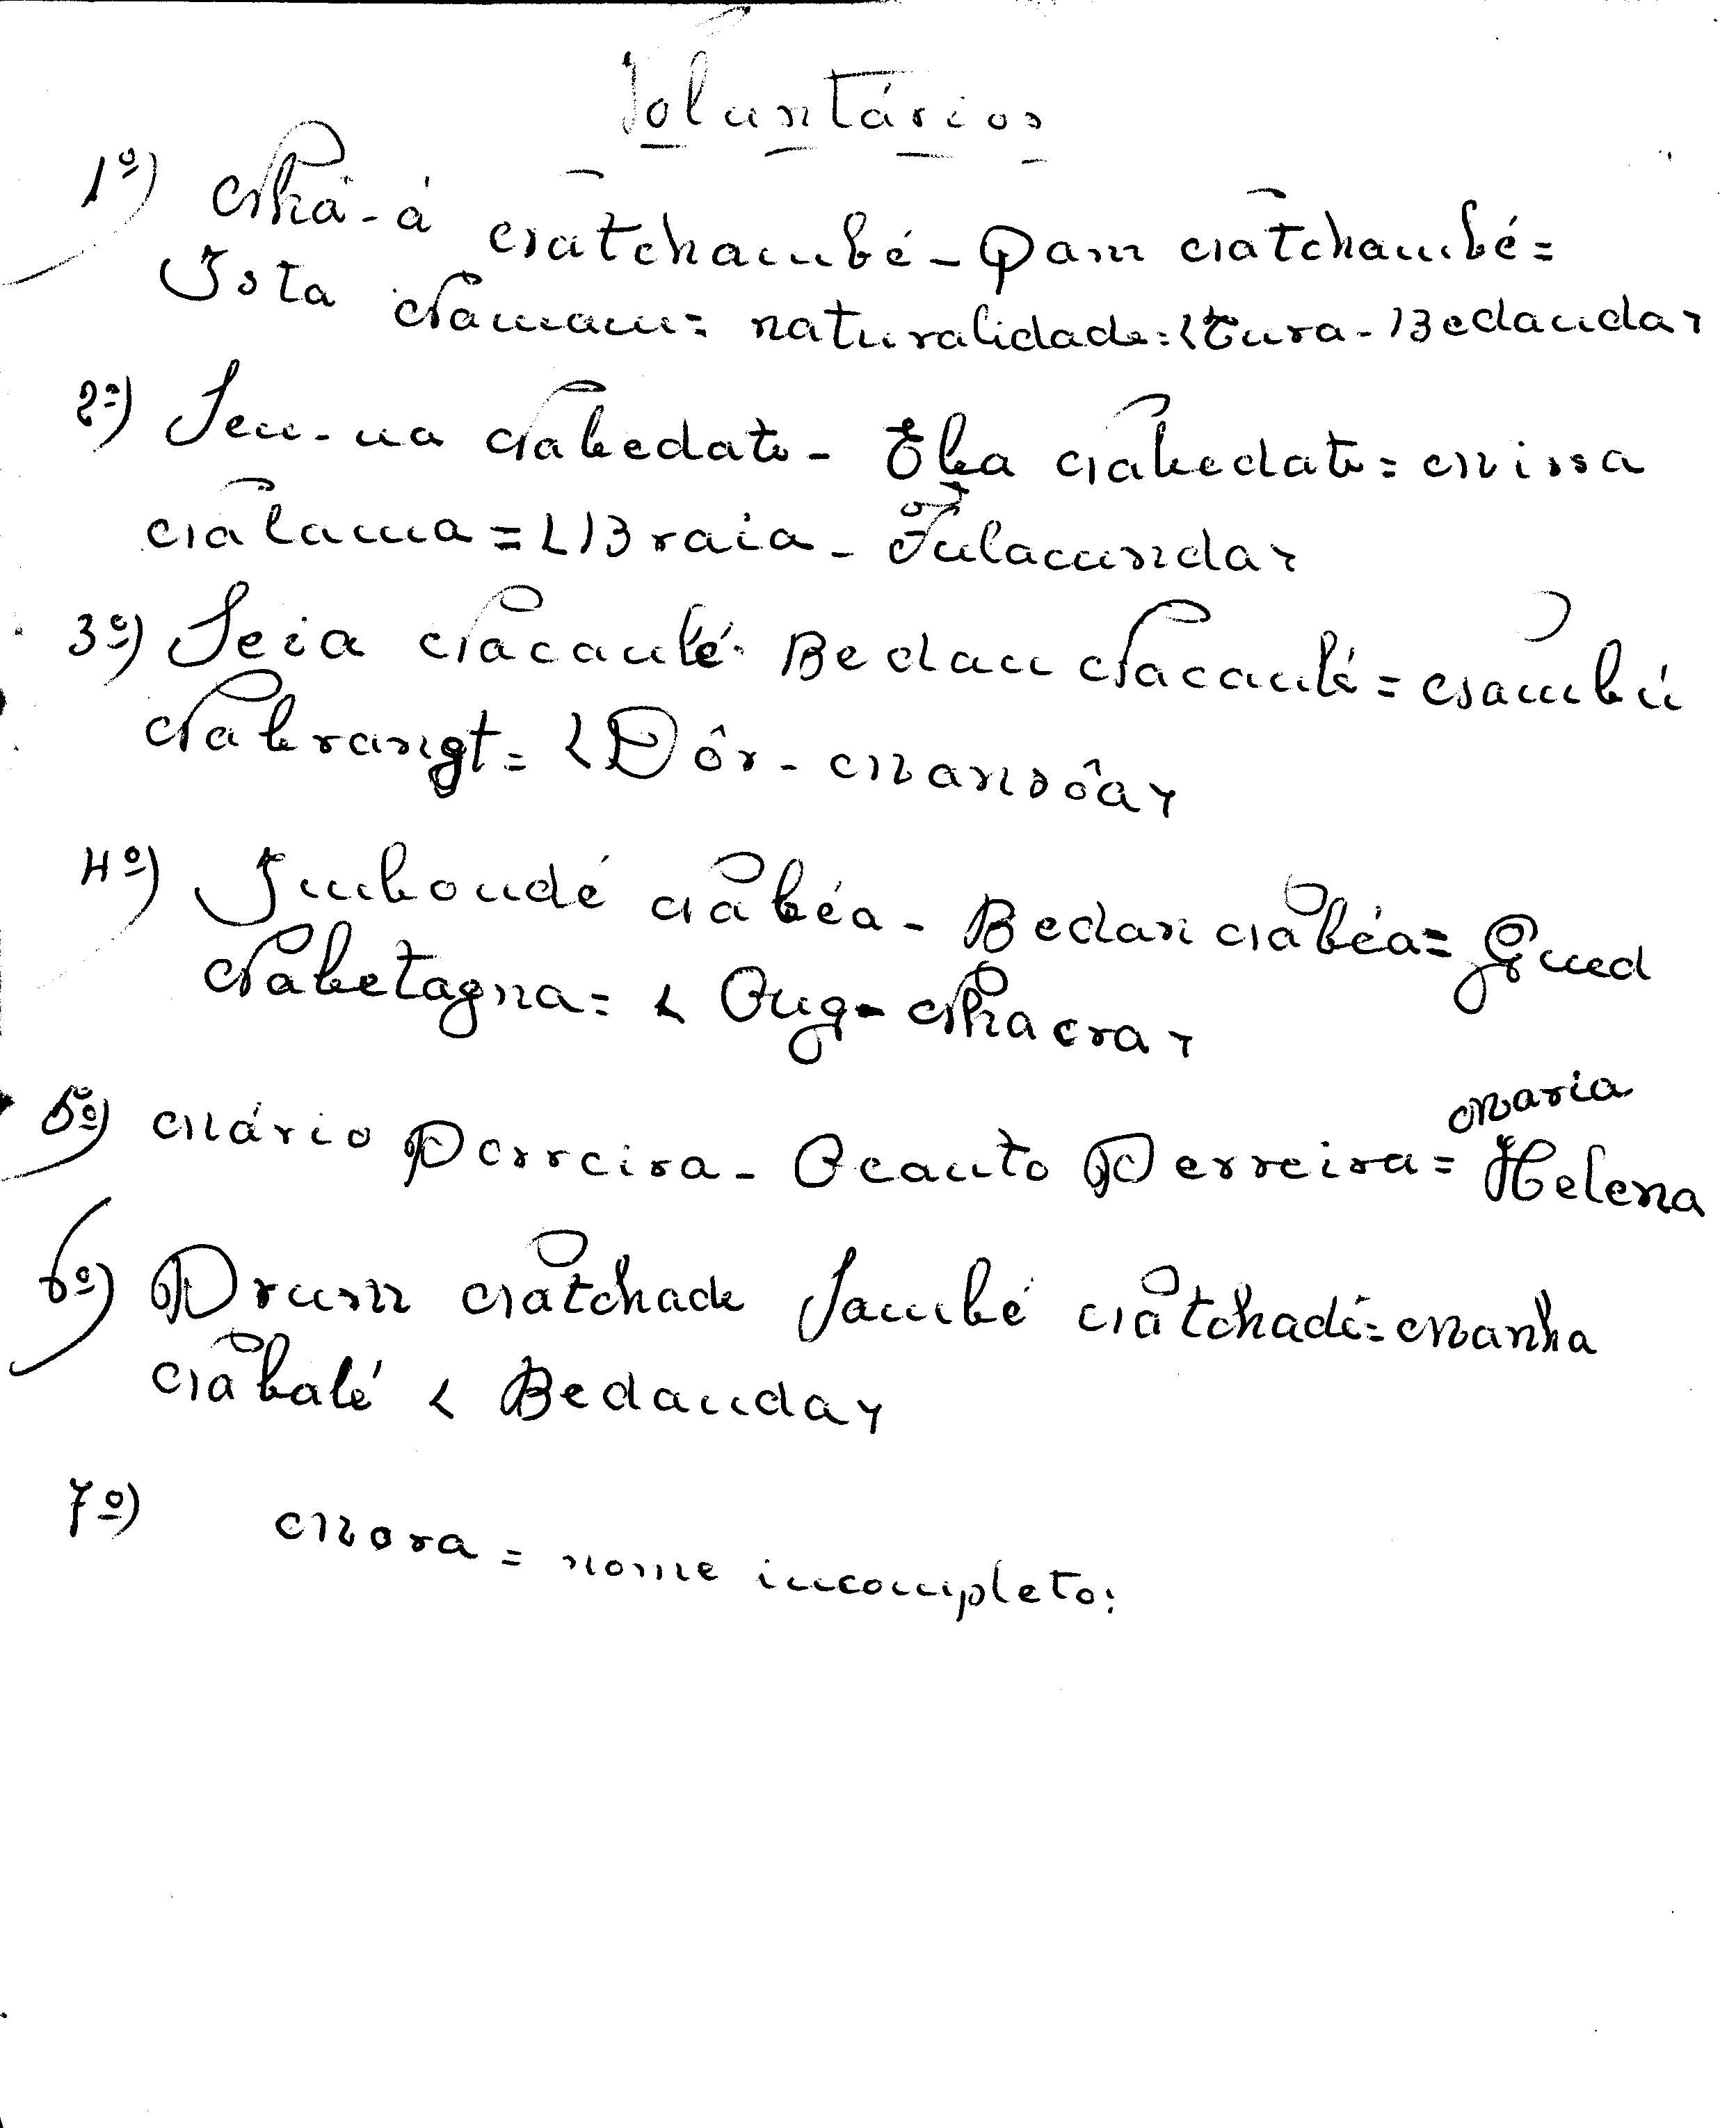 Voluntários
1º) Nhá-á Natchambé - Qam Natchambé =
Ista Namam = naturalidade = <Cura - Bedanda>
2º) Seu-na Nabedate - Eba Nabedate = Missa
Nalama = <Braia - Fulacunda>
3º) Seia Nacanlé - Bedan Nacanlé = Sambú
Nabrangt = <Dôr - Mansôa>
4º) Imboudé Nabéa - Bedan Nabéa = Qued
Nabetagna = < Oug - Nhacra>
5º) Mário Perreira - Ocanto Perreira = Maria
Helena
6º) Prum Natchade Sambé Natchadé = Manha
Nabalé < Bedanda>
7º) Mora = nome incompleto: